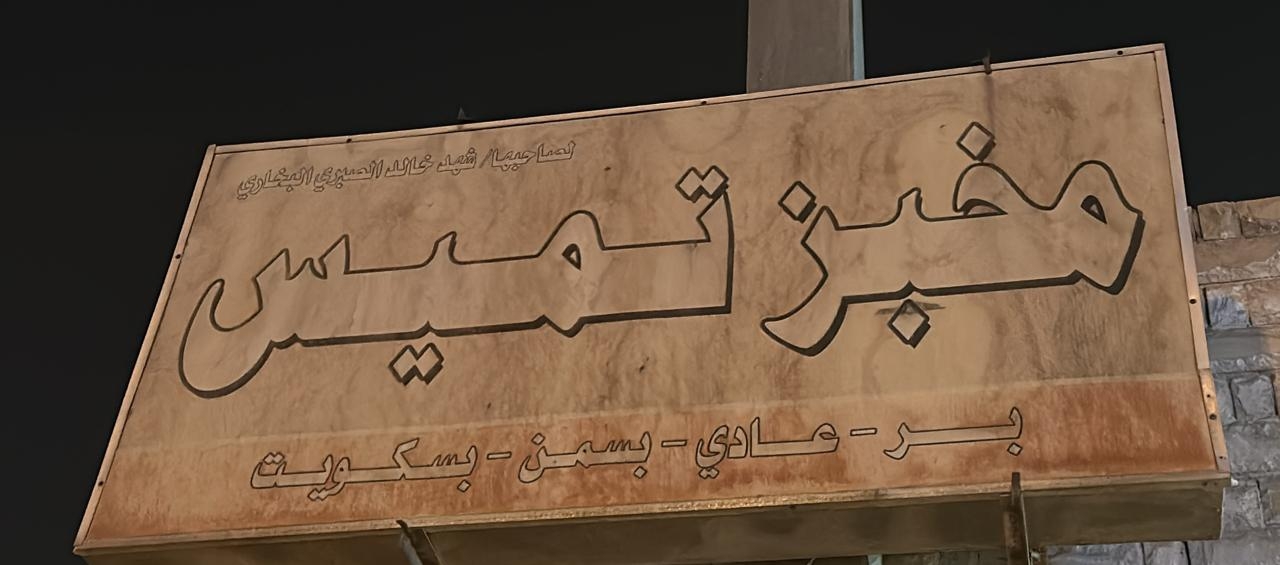 لصاحبها/ شهد خالد الصبري البخاري
مخبز تميس
بر - عادي - بسمن - بسكويت